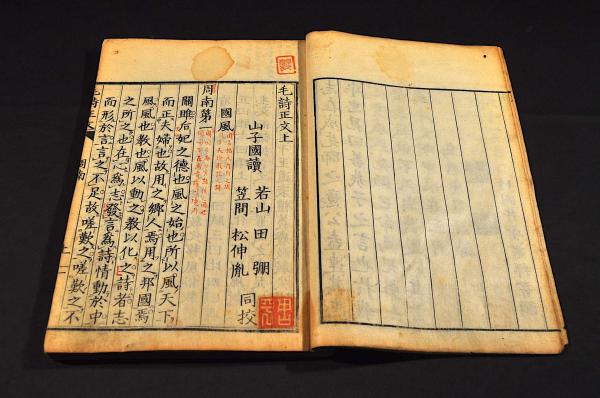 毛詩正文上
山子國讀 若山田弸
笠間松仲胤 同挍
國風
周南第一
關雎后妃之德也風之始也所以風天下
而正夫婦也故用之鄉人焉用之邦國焉
風風也敎也風以動之敎以化之詩者志
之所之也在心爲志發言爲詩情動於中
而形於言言之不足故嗟歎之嗟歎之不
毛詩正文
周南